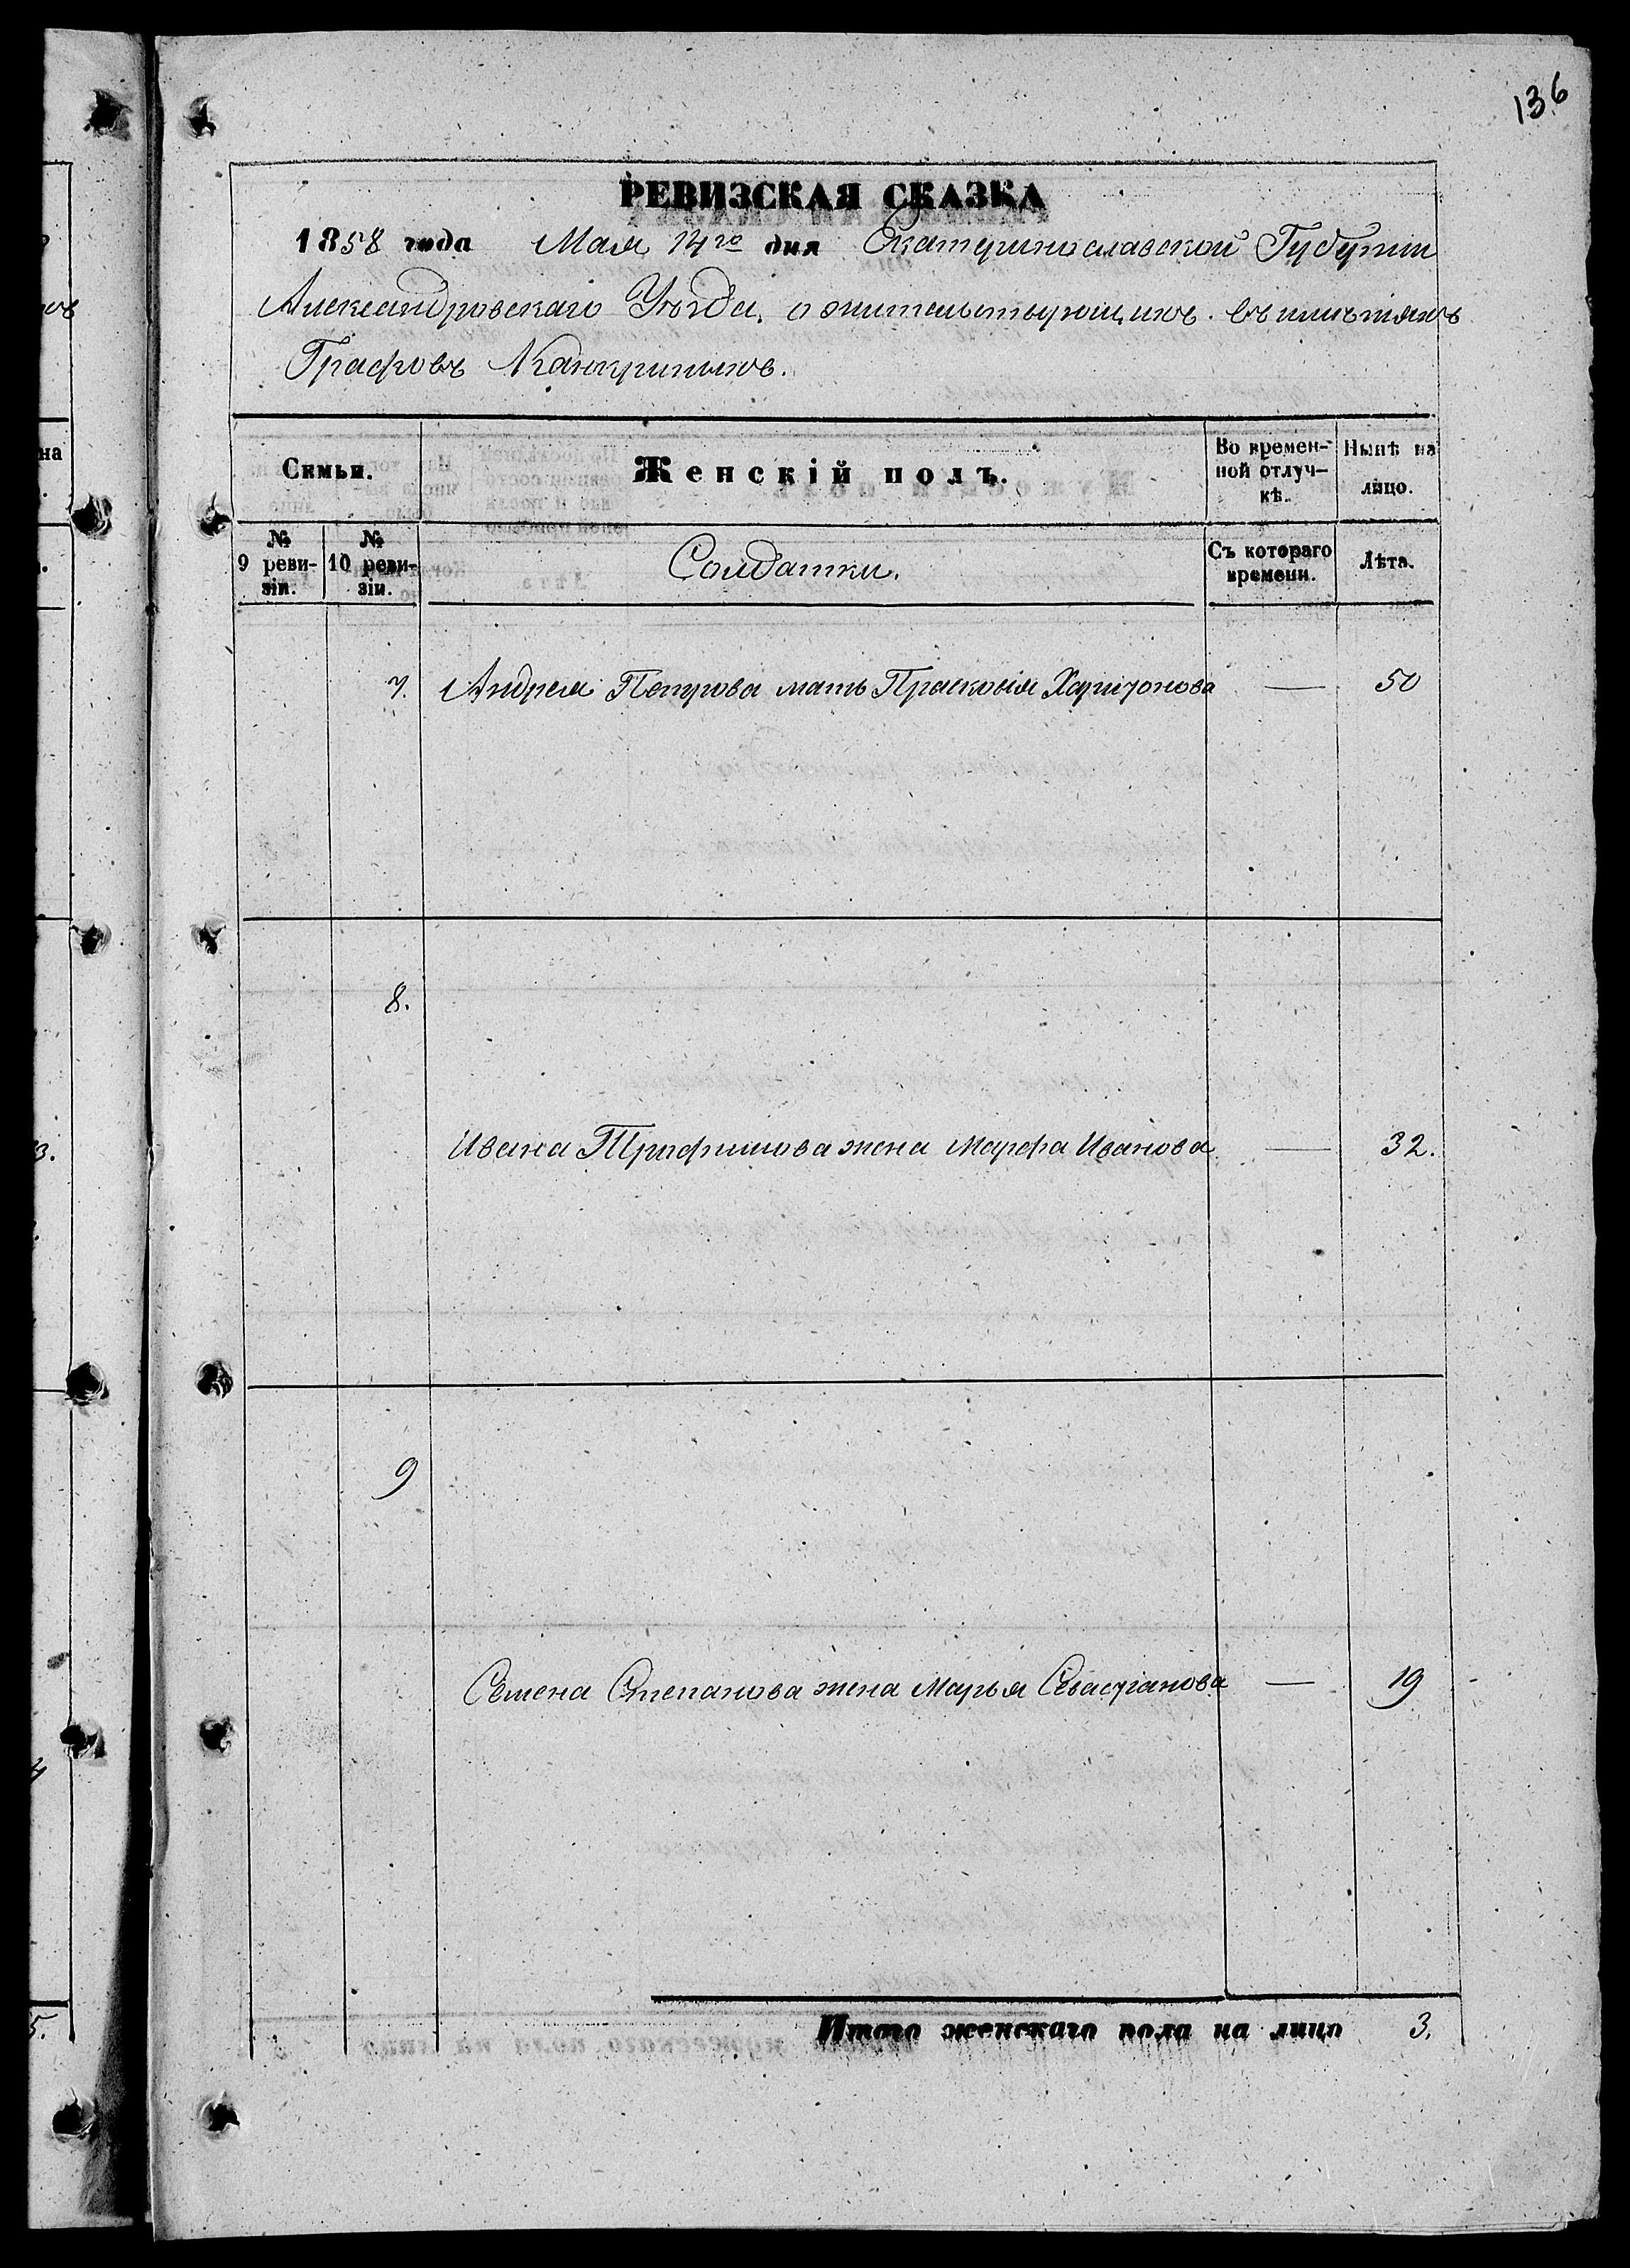 136
РЕВИЗСКАЯ СКАЗКА
1858 года Мая 14го дня Екатеринославской Губерніи
Александровскаго Уѣзда, о жительствующихъ въ имѣніяхъ
Графовъ Канкриныхъ.
Симьи. Женскій полъ. Во времен-ной отлуч-кѣ. Нынѣ на лицо.
№ 9 реви-зіи. № 10 реви-зіи. Солдатки. Съ котораго времени. Лѣта.
7. Андрея Петрова мать Прасковія Харитонова — 50
8.
Ивана Трифимова жена Марфа Иванова — 32.
9
Семена Степанова жена Марья Севастіанова — 19
Итого женскаго пола на лицо 3.